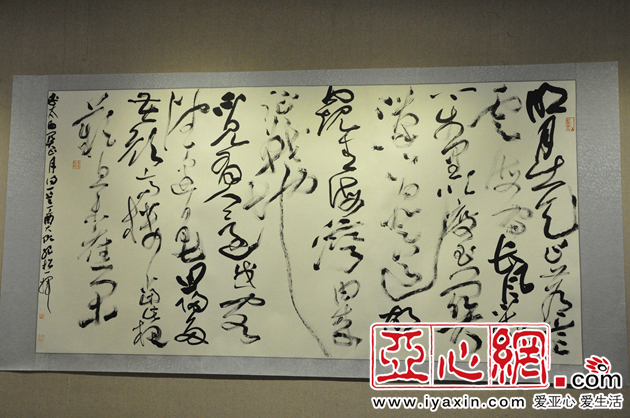 明月出天山蒼茫
雲海間長風幾
萬里吹度玉門關
漢下白登道胡
窺青海灣由來
征戰地
不見有人還戍客
望邊色思歸多
苦顏高樓當此夜
歎息未應閑
李太白關山月詩一首丁酉
亞心網.com
www.iyaxin.com 爱亚心 爱生活